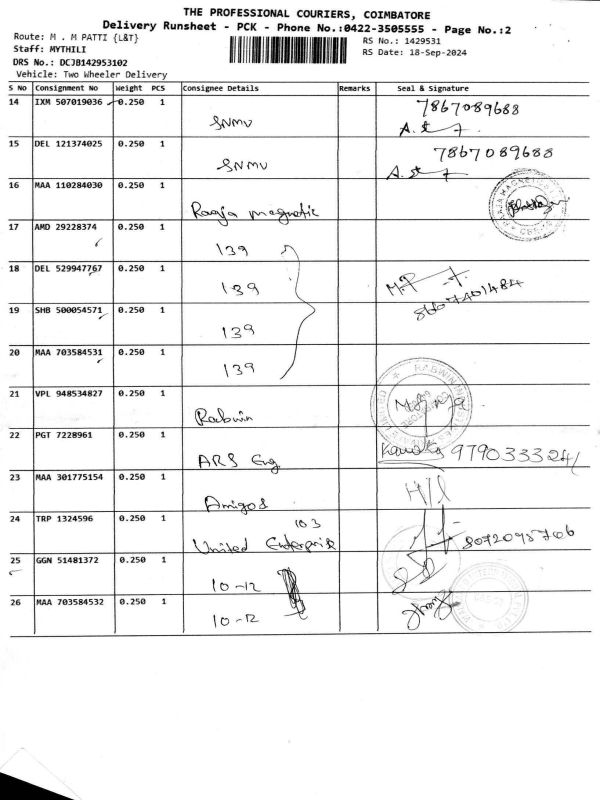 THE PROFESSIONAL COURIERS, COIMBATORE
Delivery Runsheet - PCK - Phone No.:0422-3505555 - Page No.:2
Route: M . M PATTI {L&T}
RS No.: 1429531
Staff: MYTHILI
RS Date: 18-Sep-2024
DRS No.: DCJB142953102
Vehicle: Two Wheeler Delivery
S No Consignment No Weight PCS Consignee Details Remarks Seal & Signature
14 IXM 507019036 0.250 1 SNMV 7867089688
15 DEL 121374025 0.250 1 SNMV 7867089688
16 MAA 110284030 0.250 1 Raaja magnetic
17 AMD 29228374 0.250 1 139
18 DEL 529947767 0.250 1 139 8667401484
19 SHB 500054571 0.250 1 139
20 MAA 703584531 0.250 1 139
21 VPL 948534827 0.250 1 Rabwin
22 PGT 7228961 0.250 1 ARS Eng 9790333241
23 MAA 301775154 0.250 1 Amigos
24 TRP 1324596 0.250 1 103 United Enterprise
25 GGN 51481372 0.250 1 10-12
26 MAA 703584532 0.250 1 10-12